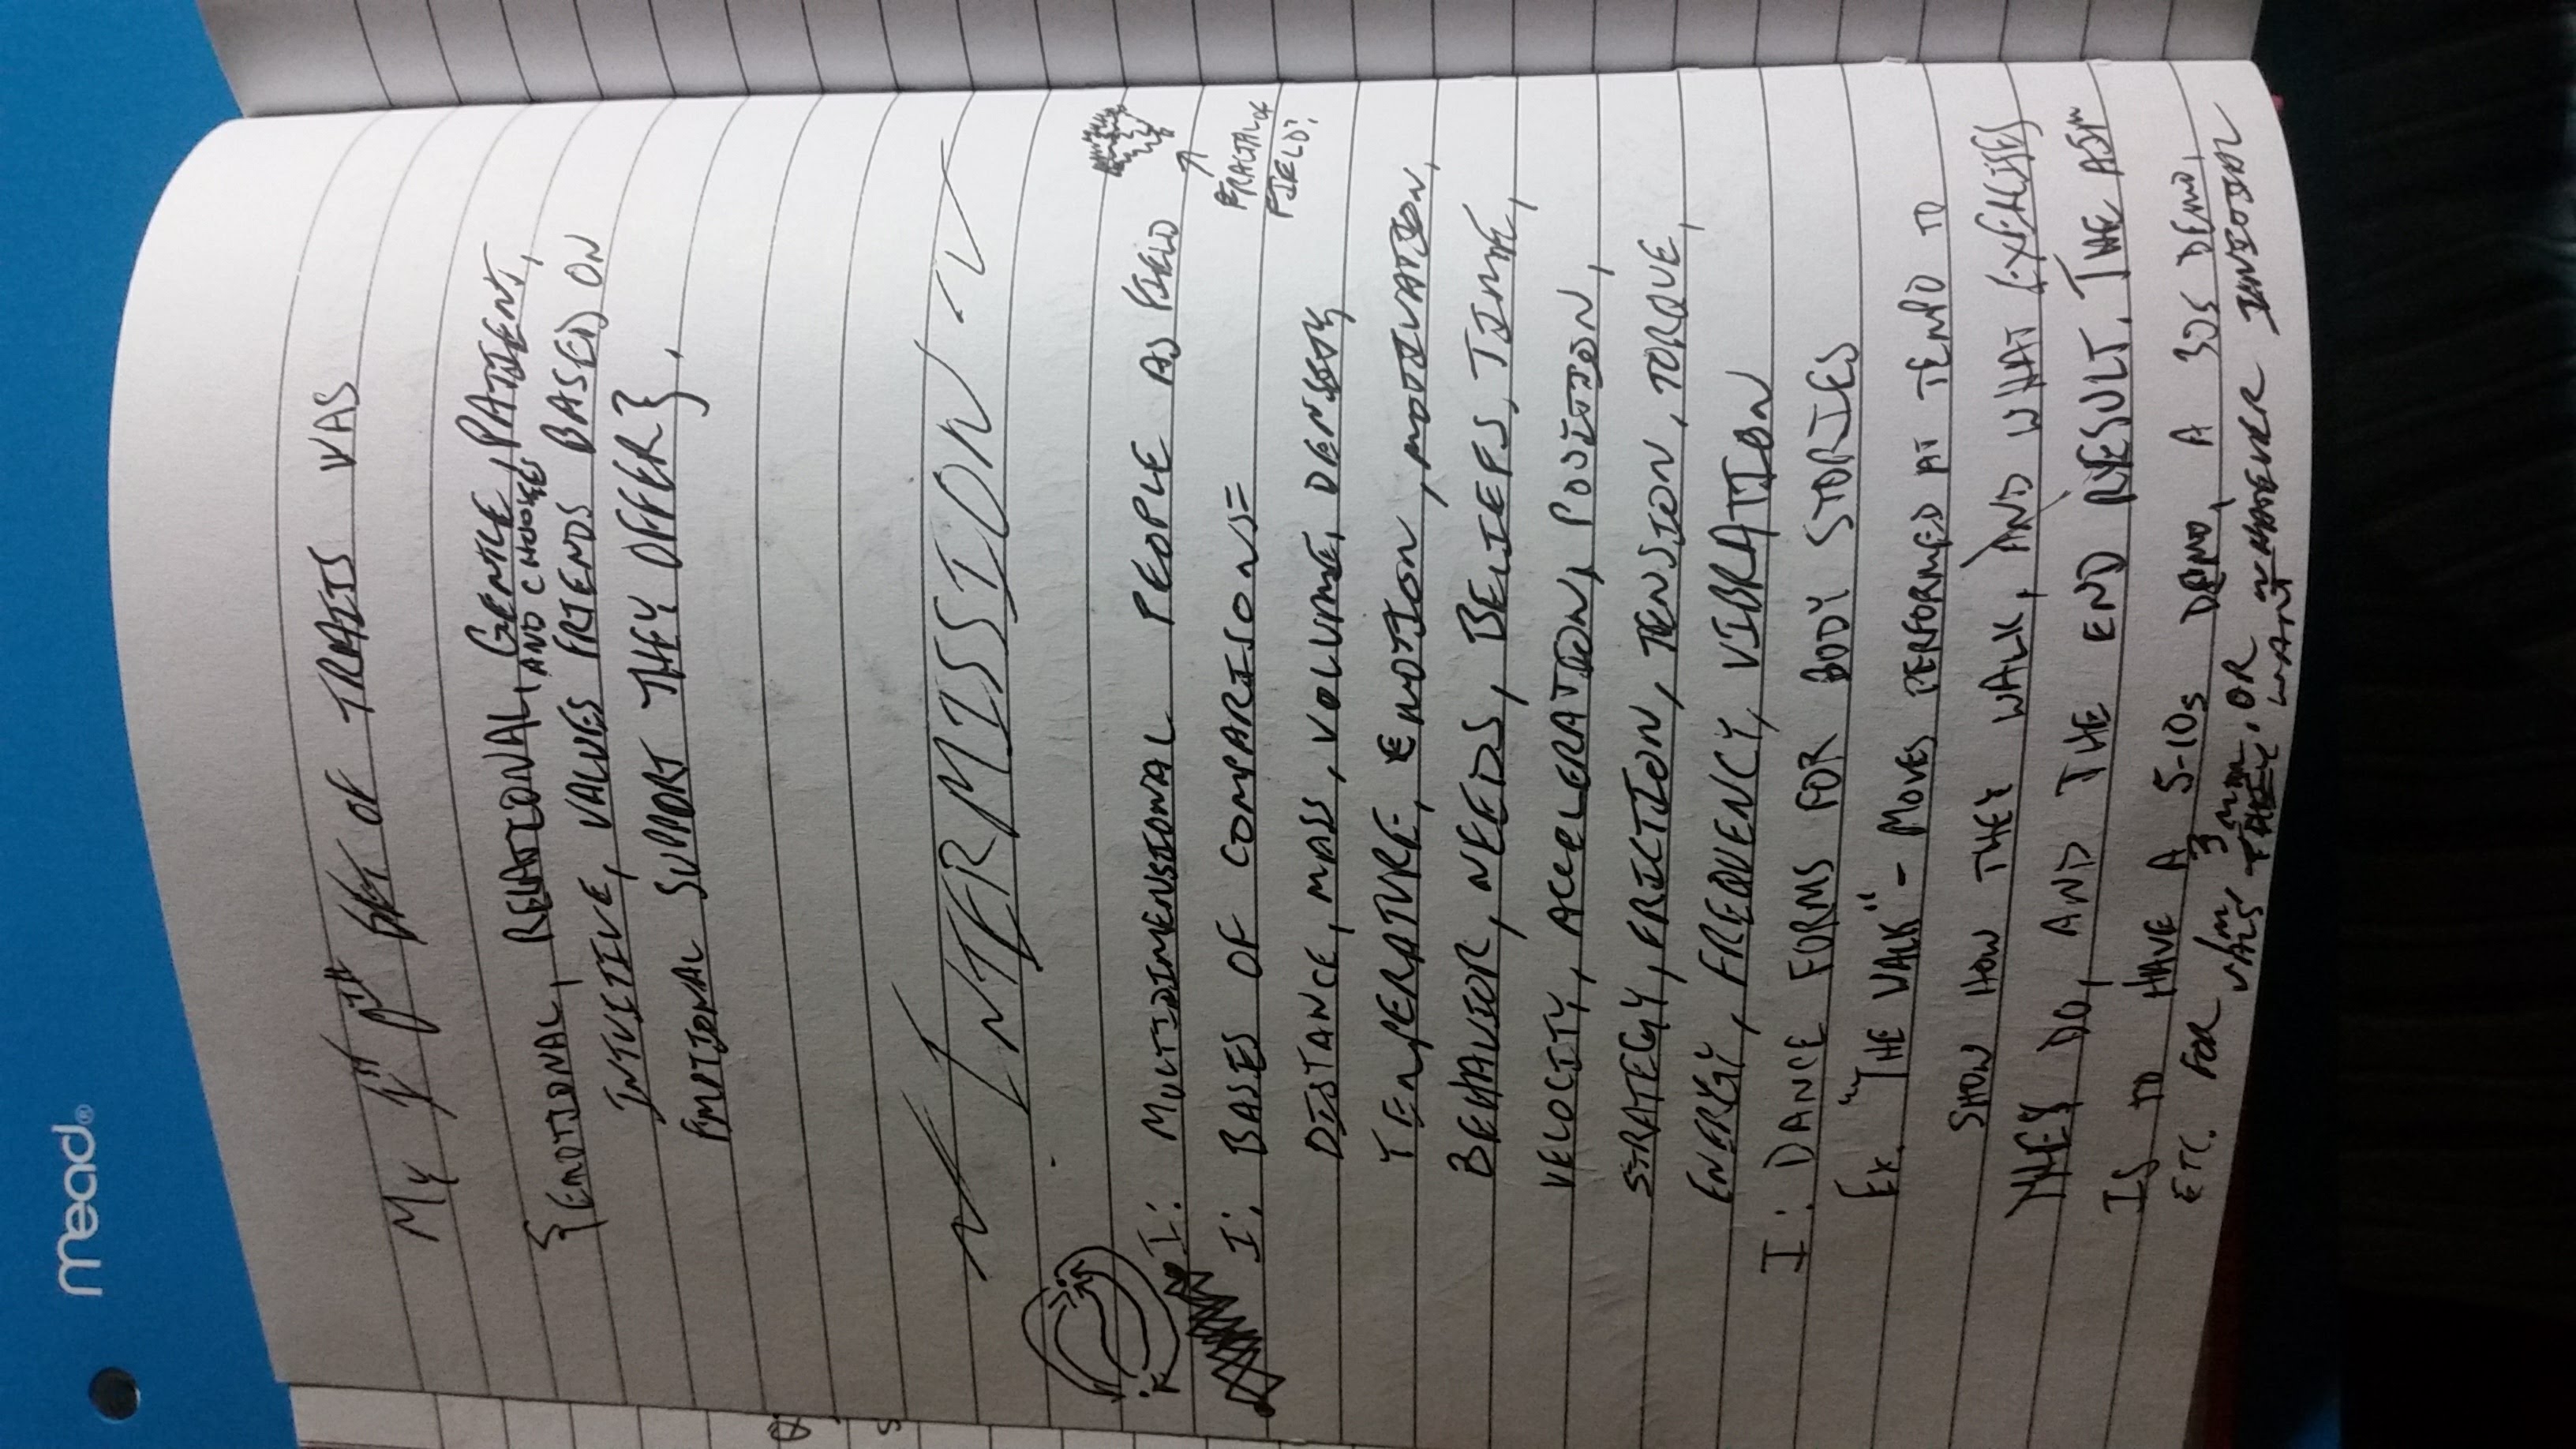 mead®
MY 1ST 0TH SET OF TRAITS WAS
{EMOTIONAL, RELATIONAL, GENTLE, PATIENT,
AND CHOOSES
INTUITIVE, VALUES FRIENDS BASED ON
EMOTIONAL SUPPORT THEY OFFER}.
~ INTERMISSION ~
I: MULTIDIMENSIONAL PEOPLE AS FIELD
I: BASES OF COMPARISON=
FRACTAL OF
FIELD?
DISTANCE, MASS, VOLUME, DENSITY,
TEMPERATURE, EMOTION, MOTIVATION,
BEHAVIOR, NEEDS, BELIEFS, TIME,
VELOCITY, ACCELERATION, POSITION,
STRATEGY, FRICTION, TENSION, TORQUE,
ENERGY, FREQUENCY, VIBRATION
I: DANCE FORMS FOR BODY STORIES
EX. "THE WALK" - MOVES PERFORMED AT TEMPO TO
SHOW HOW THEY WALK, AND WHAT EXERCISES
THEY DO, AND THE END RESULT. THE AIM
IS TO HAVE A 5-10s DEMO, A 30s DEMO,
ETC. FOR 1m, 3m, OR WHATEVER
VALS THEY WANT